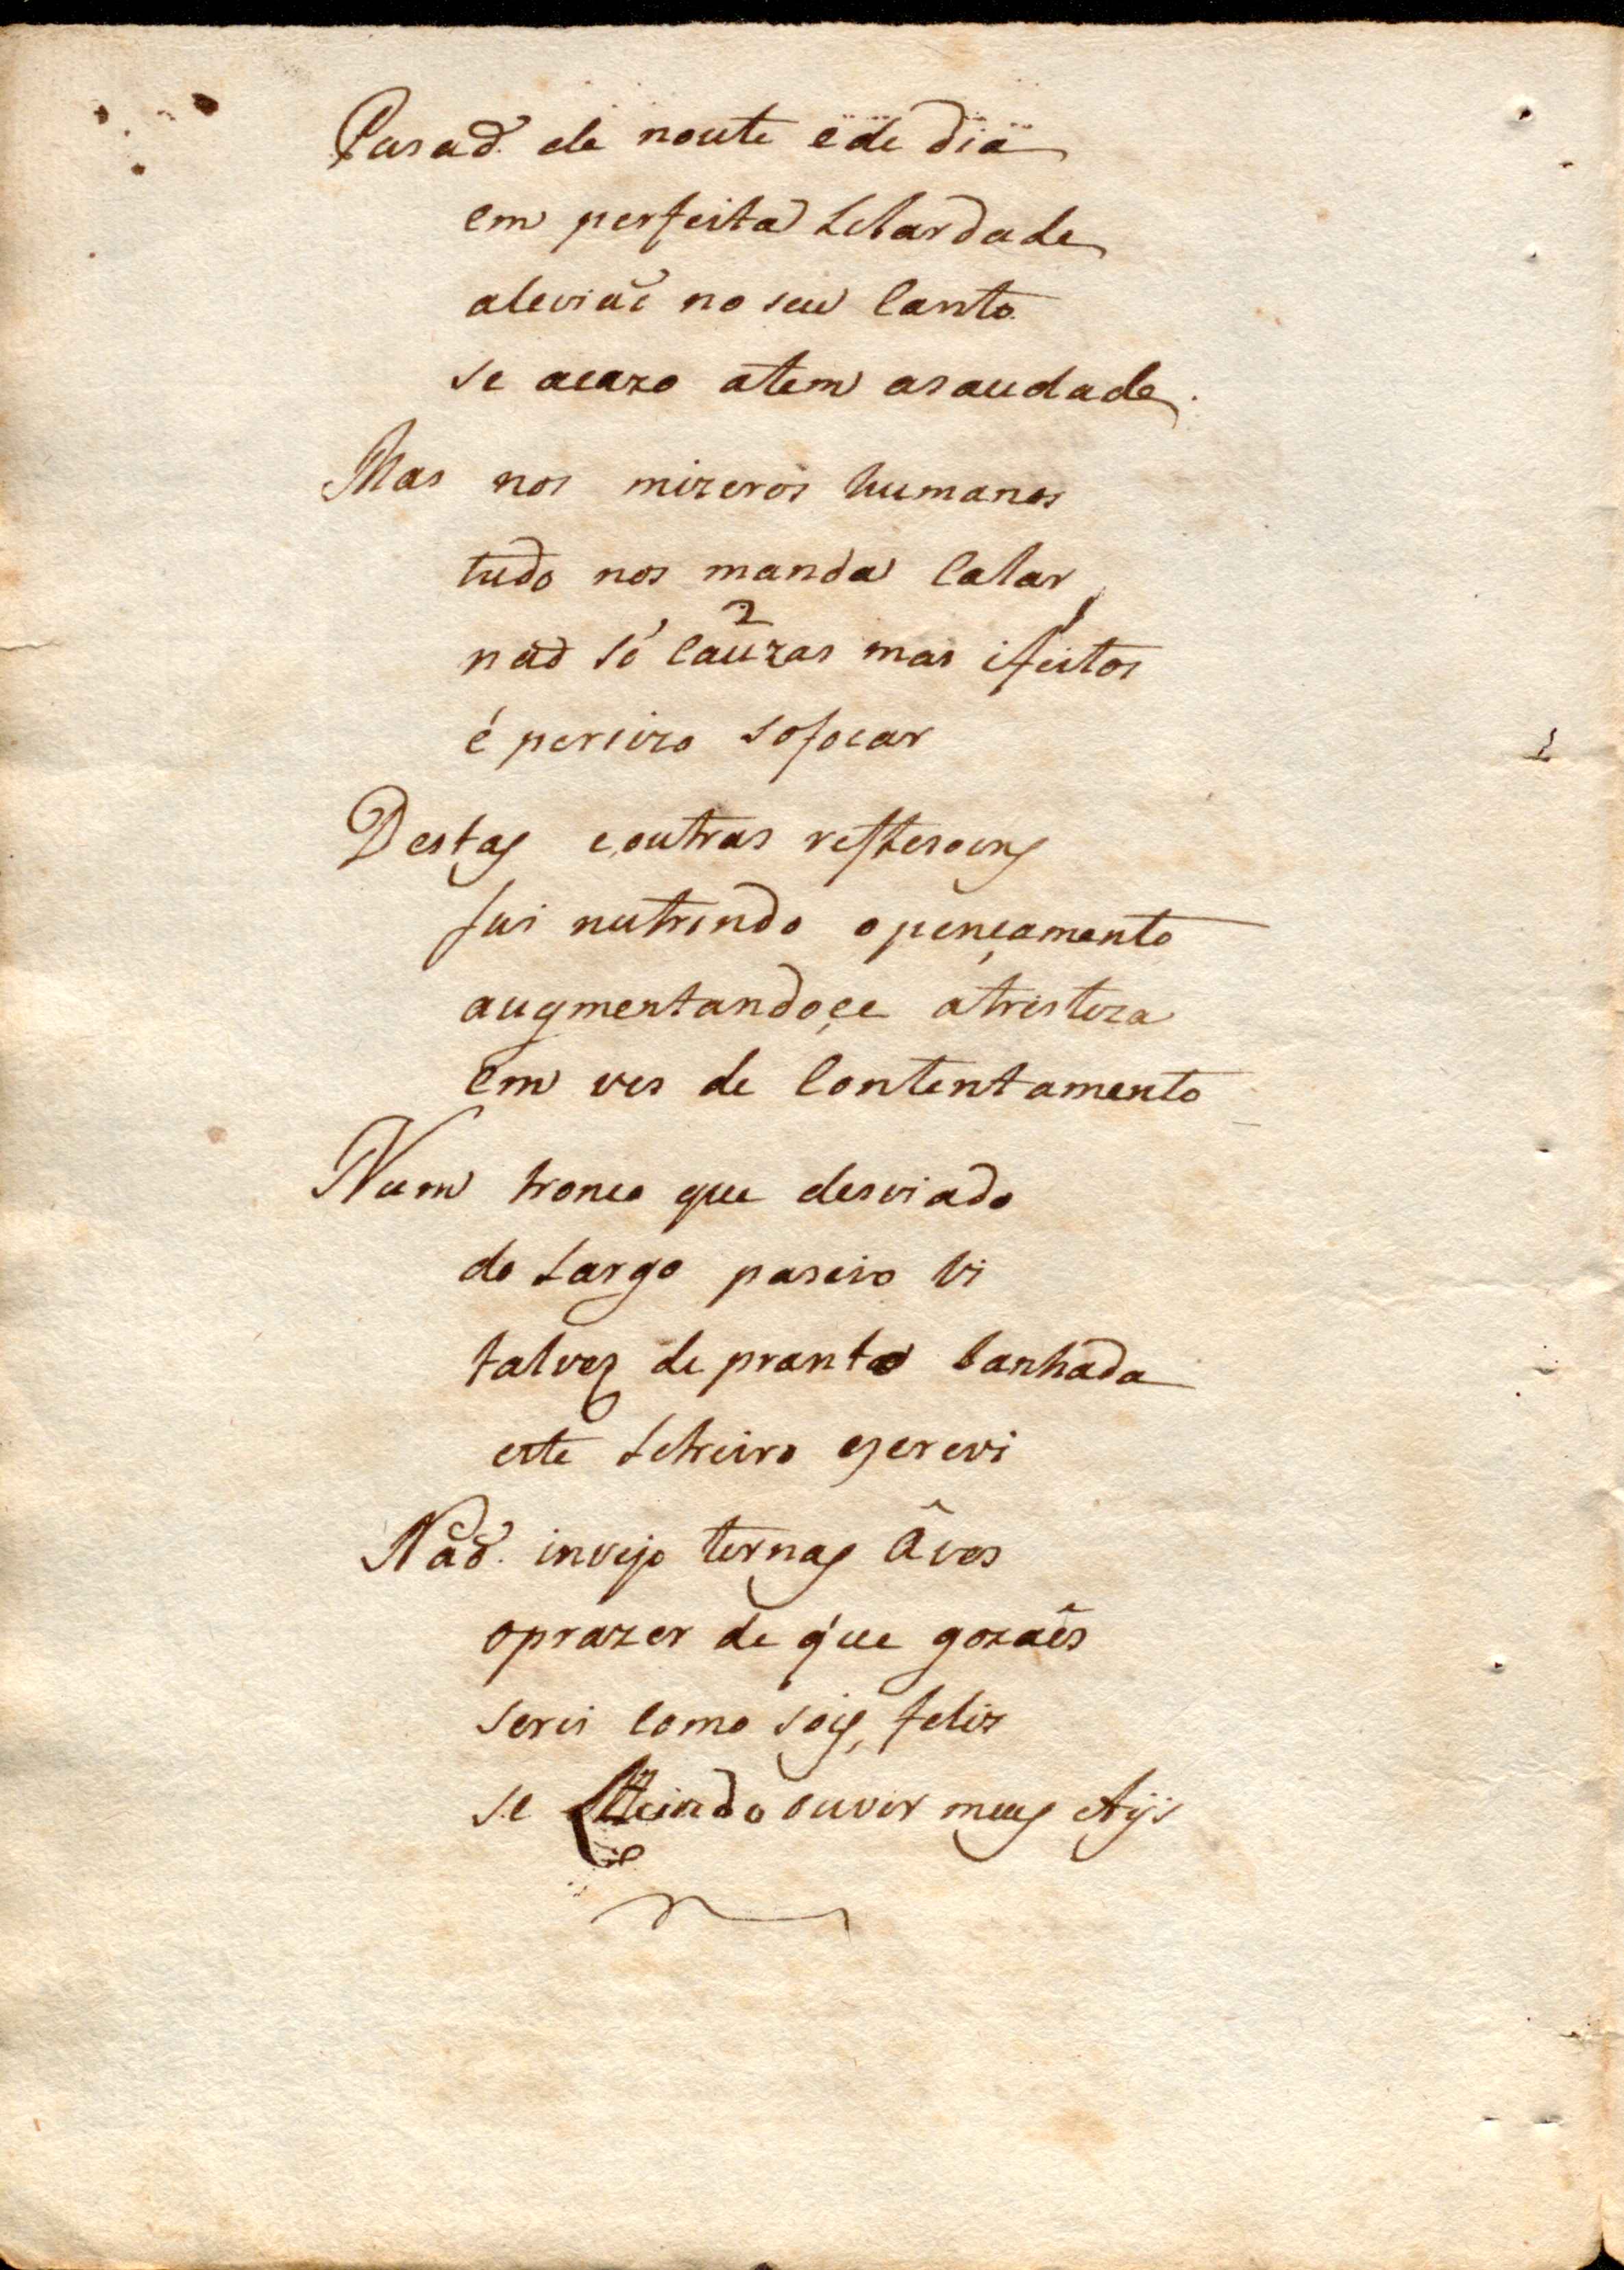 Pasaõ de noute ede dia
em perfeita Lebardade
aleviaõ no seu Canto
se acazo atem asaudade.
Mas nos mizeros humanos
tudo nos manda Calar
naõ só Cauzas mas ifeitos
é percizo sofocar
Destas eoutras reflesoens
fui nutrindo opençamento
augmentandoçe atristeza
em ves de Contentamento
Num tronco que desviado
do Largo paseio vi
talvez de pranto banhada
este Letreiro escrevi
Naõ invejo ternas Âves
oprazer de que gozaês
serei como sois, feliz
se ouvir meus Ays